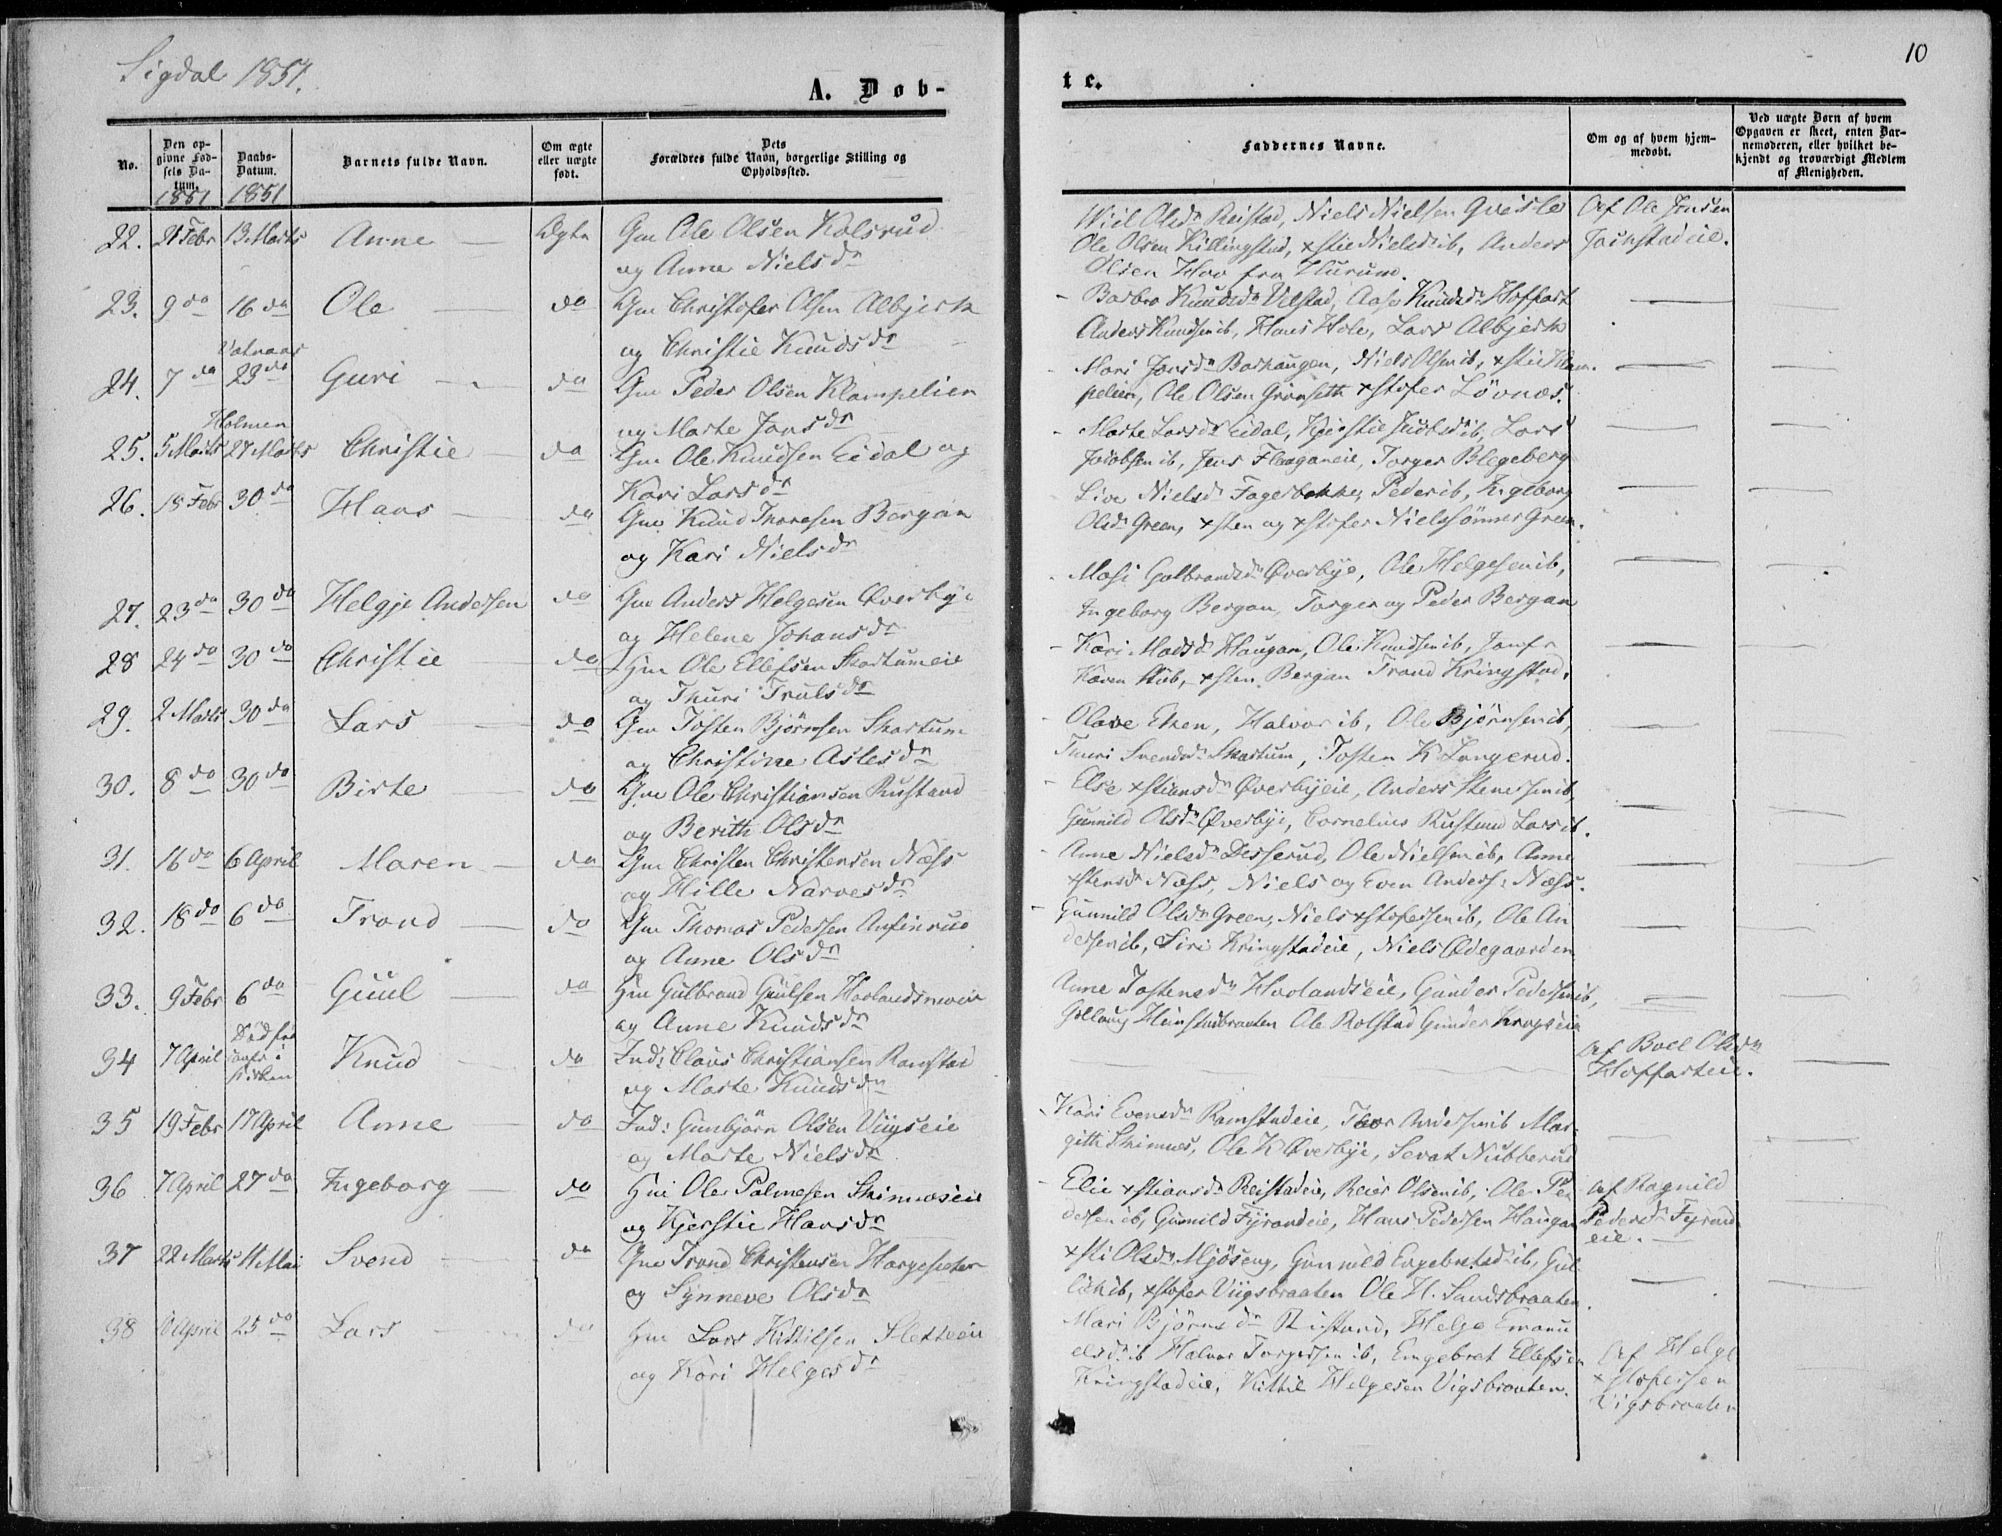 Sigdal 1851.
A. Døb-
No.
Den opgivne Fødsels Datum.
1851
Daabs-Datum.
1851
Barnets fulde Navn.
Om ægte eller uægte født.
Dets Forældres fulde Navn, borgerlige Stilling og Opholdssted.
22. 21 Febr 13 Marts Anne Ægte Gm Ole Olsen Kolsrud
og Anne Nielsdr
23. 9 do 16 do Ole do Gm Christofer Olsen Albjerk
og Christie Knudsdr
Vatnaas
24. 7 do 23 do Guri do Gm Peder Olsen Klampelien
og Marte Jonsdr
Holmen
25. 5 Marts 27 Marts Christie do Gm Ole Knudsen Eidal og
Kari Larsdr
26. 18 Febr 30 do Hans do Gm Knud Thoresen Bergan
og Kari Nielsdr
27. 23 do 30 do Helgje Andersen do Gm Anders Helgesen Øverbye
og Helene Johansdr
28 24 do 30 do Christie do Hm Ole Ellefsen Skartumeie
og Thuri Trulsdr
29. 2 Marts 30 do Lars do Gm Tosten Bjørnsen Skartum
og Christine Astesdr
30. 8 do 30 do Birte do Gm Ole Christiansen Rustand
og Berith Olsdr
31. 16 do 6 April Maren do Gm Christen Christensen Næss
og Hille Narvesdr
32. 18 do 6 do Trond do Gm Thomas Pedersen Anfinrud
og Anne Olsdr
33. 9 Febr 6 do Guul do Hm Gulbrand Guulsen
og Anne Knudsdr
34 7 April Død før i Kirken Knud do Ind: Claus Christiansen Ramstad
og Marte Knudsdr
35 19 Febr 17 April Anne do Ind: Gunbjørn Olsen Viigseie
og Marte Nielsdr
36 7 April 27 do Ingeborg do Hm Ole Palmesen Skinnæseie
og Kjerstie Hansdr
37 22 Marts 11 Mai Svend do Gm Trond Christensen
og Synneve Olsdr
38 April 25 do Lars do Hm Lars Kittilsen Sletteeie
og Kari Helgesdr
te.
10
Faddernes Navne.
Om og af hvem hjemmedøbt.
Ved uægte Børn af hvem Opgaven er skeet, enten Barnemoderen, eller hvilket bekjendt og troværdigt Medlem af Menigheden.
Olsdr Reistad, Niels Nielsen Gvisle Af Ole Jensen
Ole Olsen Killingstad, xstie Nielsd ib, Anders
Olsen Hov fra Hurum.
Barbro Knudsdr Velstad, Aase Knudsdr Hoffart
Anders Knudsen ib, Hans Hole, Lars Albjerk
Mari Jonsdr Borhaugen, Niels Olsen ib, xstie Klam-
pelien, Ole Olsen Grønseth xstofer Løvnæs.
Marte Larsdr Eidal, Kjerstie ib, Lars
Jacobsen ib, Jens Flaaganeie, Torger Blegeberg
Live Nielsdr Fagerbakke, Peder ib, Ingeborg
Olsdr Green, xsten og xstofer Nielssønner Green.
Masi Gulbrandsdr Øverbye, Ole Helgesen ib,
Ingeborg Bergan, Torger og Peder Bergan
Kari Madsdr Haugan, Ole Knudsen ib, Jomfr
Karen Stub, xsten Bergan Trond Kringstad.
Olave Eken, Halvor ib, Ole Bjørnsen ib,
Thuri Svendsdr Skartum, Tosten K Langerud.
Else xstiansdr Øverbyeie, Anders Stenersen ib,
Gunnild Olsdr Øverbye, Cornelius Rustand Lars ib.
Anne Nielsdr Desserud, Ole Nielsen ib, Anne
xstensdr Næss, Niels og Even Anders: Næss.
Gunnild Olsdr Green, Niels xstofersen ib, Ole An-
dersen ib, Siri Kringstadeie, Niels Ødegaarden
Anne Tostensdr Hovlandseie, Gunder Pedersen ib,
Hunstadbraaten Ole Rolstad Gunder
Af Boel Olsdr
Hoffarteie.
Kari Evensdr Ramstadeie, Thor Andersen ib Mar-
gith Skinnes, Ole K Øverbye, Sevat Nubberud
Elie xstiansdr Reistadeie, Reier Olsen ib, Ole Pe- Af Ragnild
dersen ib, Gunild Fyrandeie, Hans Pedersen Haugan Pedersdr Fyrand
eie.
xsti Olsdr Mjøseng, Gunnild Engebretsd ib, Gul-
lik ib, xstofer Viigsbraaten Ole H. Sandsbraaten.
Mari Bjørnsdr Rustand, Helge Emanu-
elsd ib Halvor Torgersen ib, Engebret Ellefsen Af Helge
Kringstadeie, Kittil Helgesen Vigsbraaten. xstofersen
Vigsbraaten